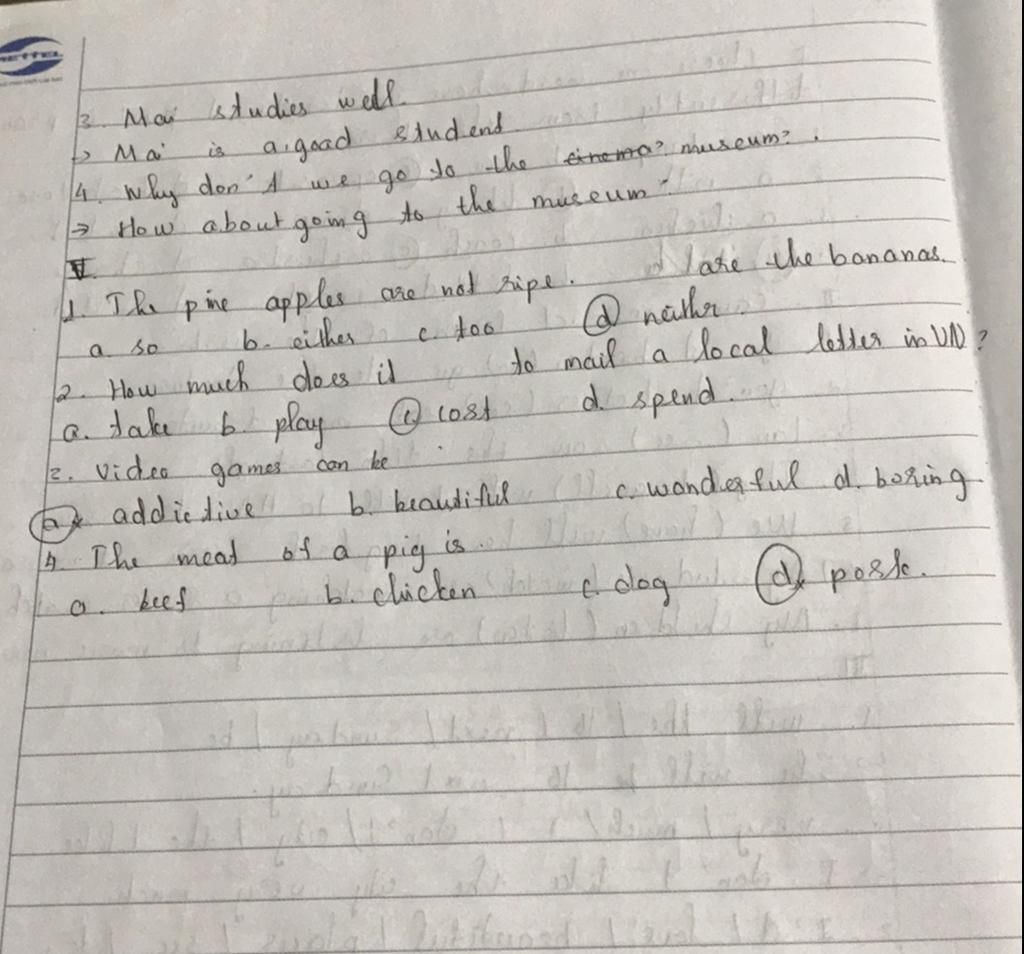 VIETTEL
3. Mai studies well.
-> Mai is a good student.
4. Why don't we go to the cinema? museum?.
-> How about going to the museum?
V.
1. The pine apples are not ripe. are the bananas.
a. so b. either c. too d neither
2. How much does it to mail a local letter in VN?
a. take b. play c cost d. spend.
3. Video games can be
a addictive b. beautiful c. wonderful d. boring
4 The meat of a pig is.
a. beef b. chicken c. dog d pork.